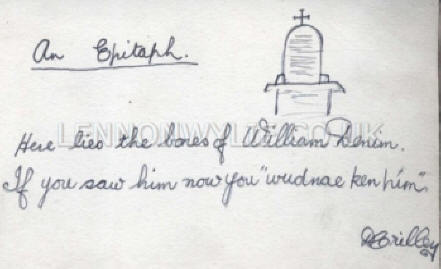 An Epitaph.
LENNONWYLIE.CO.UK
Here lies the bones of William Denim.
If you saw him now you "wudnae ken him".